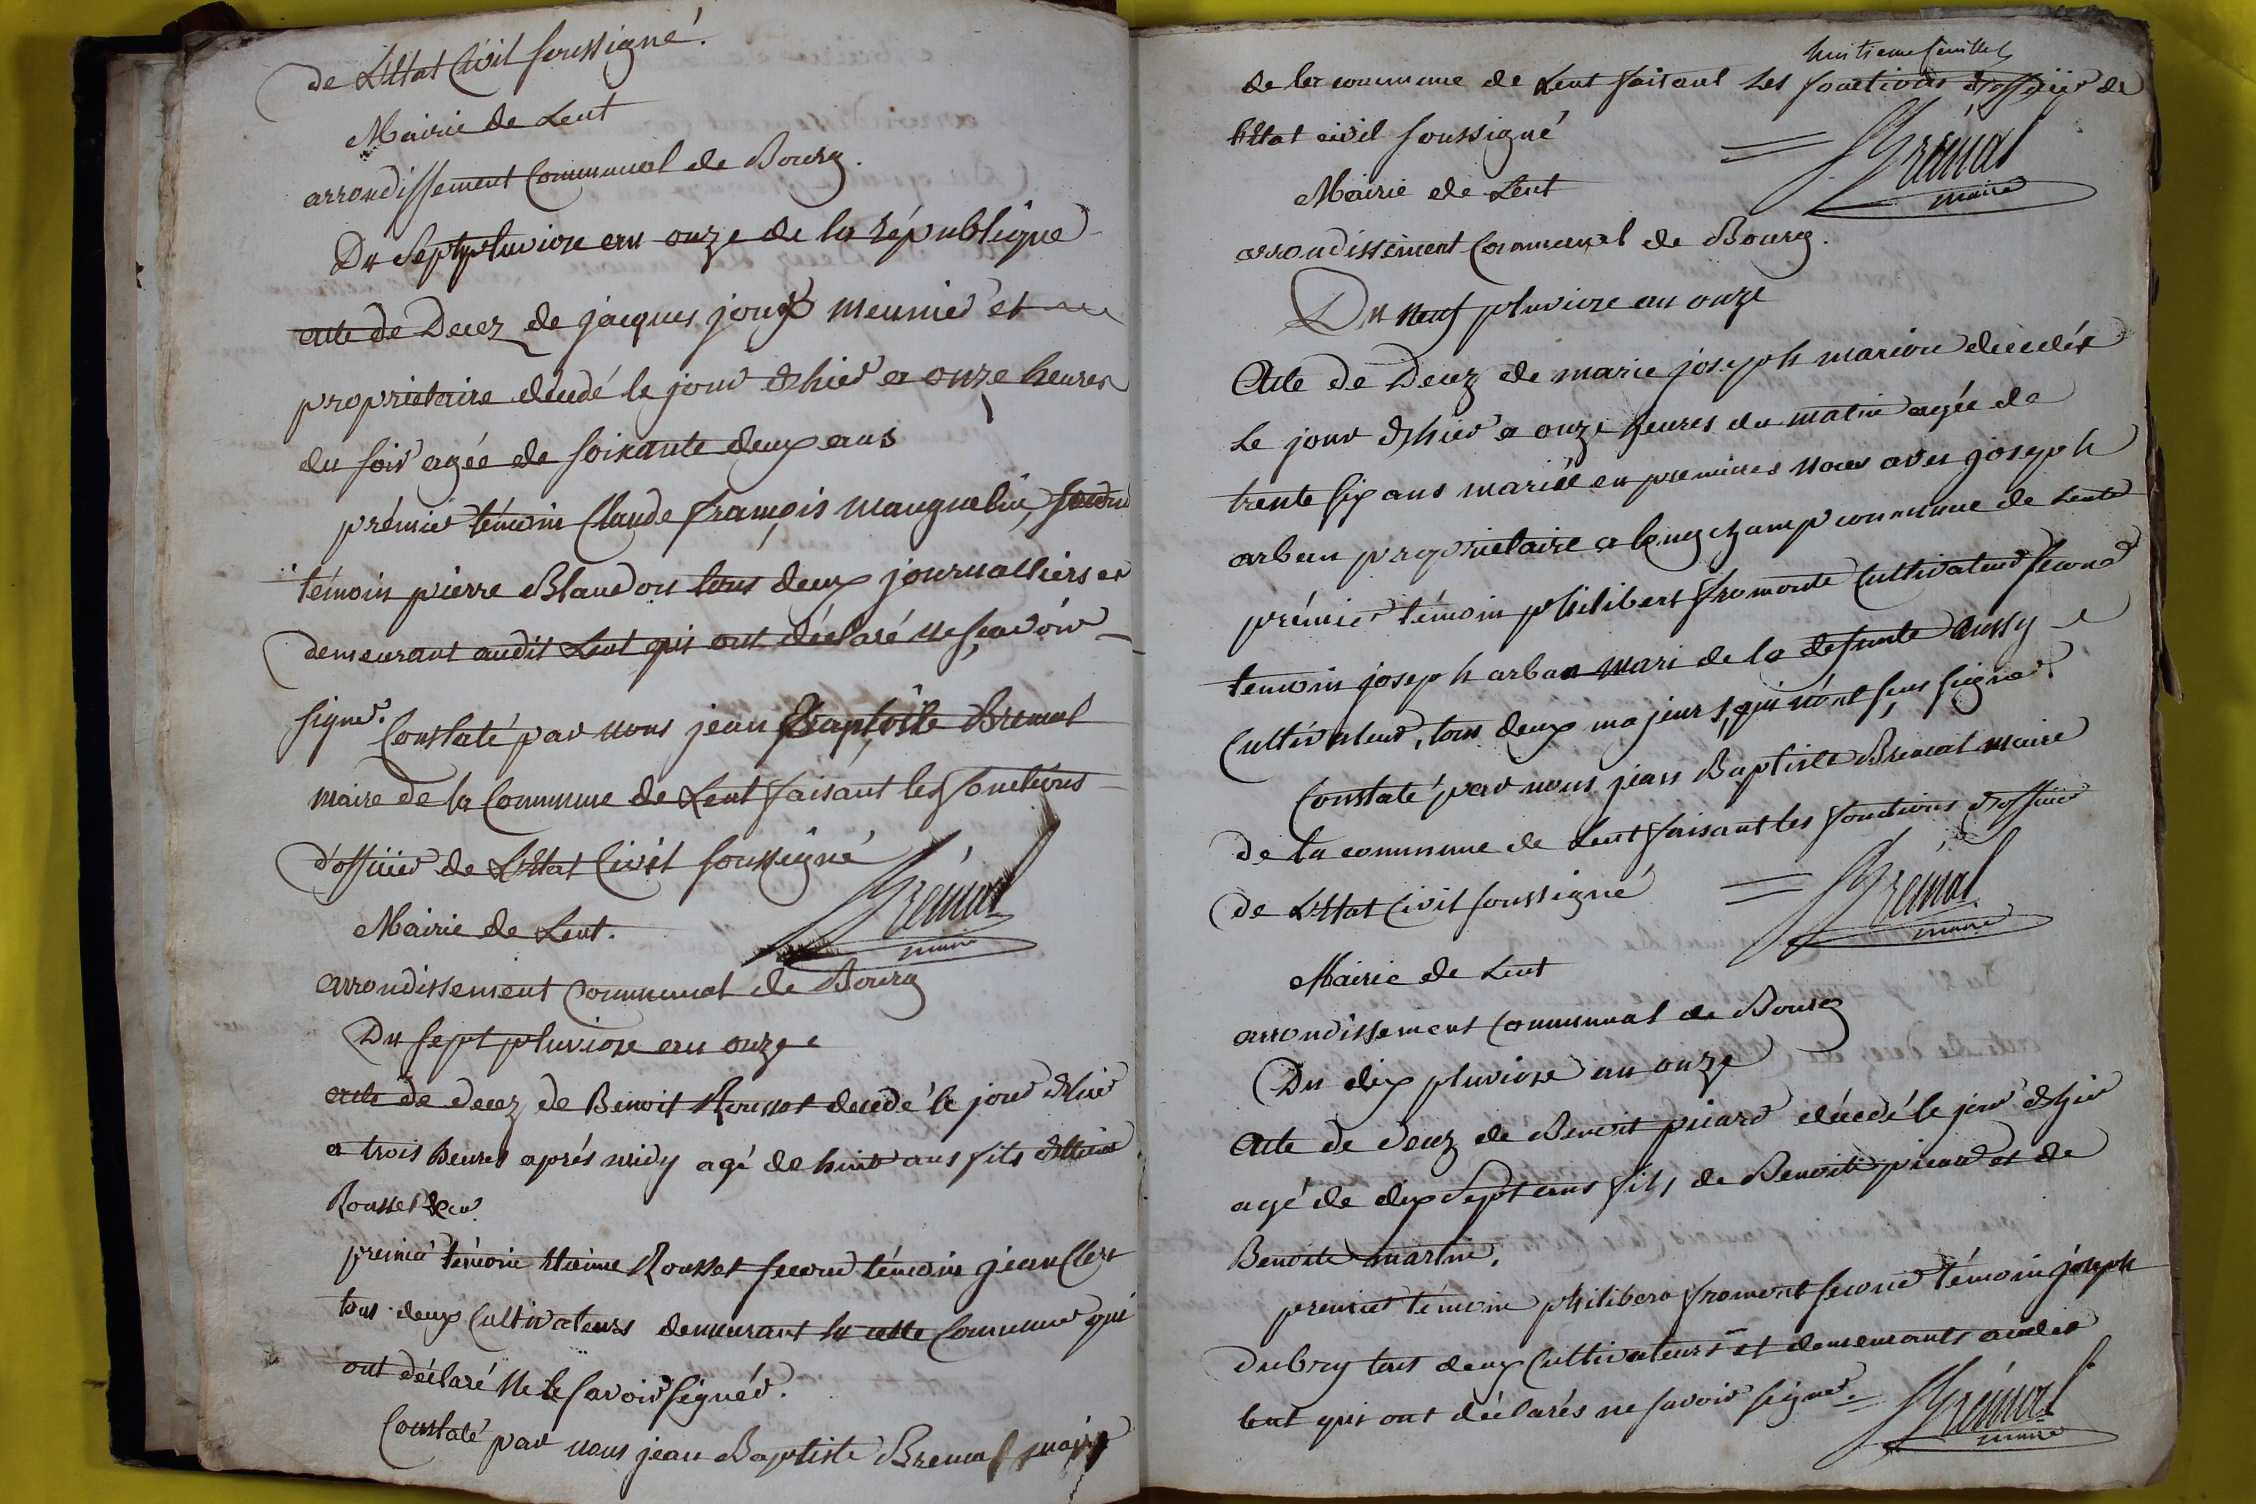 de L'Etat Civil soussigné.
Mairie de Lent
arrondissement Communal de Bourg.
Du Sept pluviose an onze de la république
acte de Decez de jacques joux meunier et
proprietaire décédé le jour d'hier a onze heures
du soir agée de soixante deux ans
prémier témoin Claude françois mauguelin, second
témoin pierre Blandon tous deux journalliers et
demeurant audit Lent qui ont déclaré ne sçavoir
signer.
Constaté par nous jean Baptiste Bremal
maire de la Commune de Lent faisant les fonctions
d'officier de L'Etat Civil soussigné
Brémal
maire
Mairie de Lent.
arrondissement Communal de Bourg
Du sept pluviose an onze
acte de decez de Benoit Rousset decedé le jour d'hier
a trois heures aprés midy agé de huit ans fils d'Etienne
Rousset
premier témoin Etienne Rousset second témoin jean Clerc
tous deux Cultivateurs demeurant cette Commune qui
ont déclaré ne le savoir signér.
Constaté par nous jean Baptiste Bremal maire
huitieme feuillet
de la commune de Lent faisant les fonctions d'officier de
l'Etat civil soussigné
Brémal
maire
Mairie de Lent
arrondissement Communal de Bourg.
Du neuf pluviose an onze
Acte de Decez de marie joseph marion decedée
le jour d'hier a onze heures du matin agée de
trente six ans mariée en premieres noces avec joseph
arban proprietaire a longchamp commune de Lent
prémier témoin philibert fromont Cultivateur second
temoin joseph arban mari de la defunte aussy
Cultivateur, tous deux majeurs, qui n'ont sçus signer.
Constaté par nous jean Baptiste Bremal maire
de la commune de Lent faisant les fonctions d'officier
de L'Etat Civil soussigné
Brémal
maire
Mairie de Lent
arrondissement Communal de Bourg
Du dix pluviose an onze
Acte de decez de Benoit picard décedé le jour d'hier
agé de dix Sept ans fils de Benoit picard et de
Benoite martin.
premier témoin philibert fromont second témoin joseph
Dubry tous deux Cultivateurs et demeurants audit
Lent qui ont déclarés ne savoir signer.
Brémal
maire